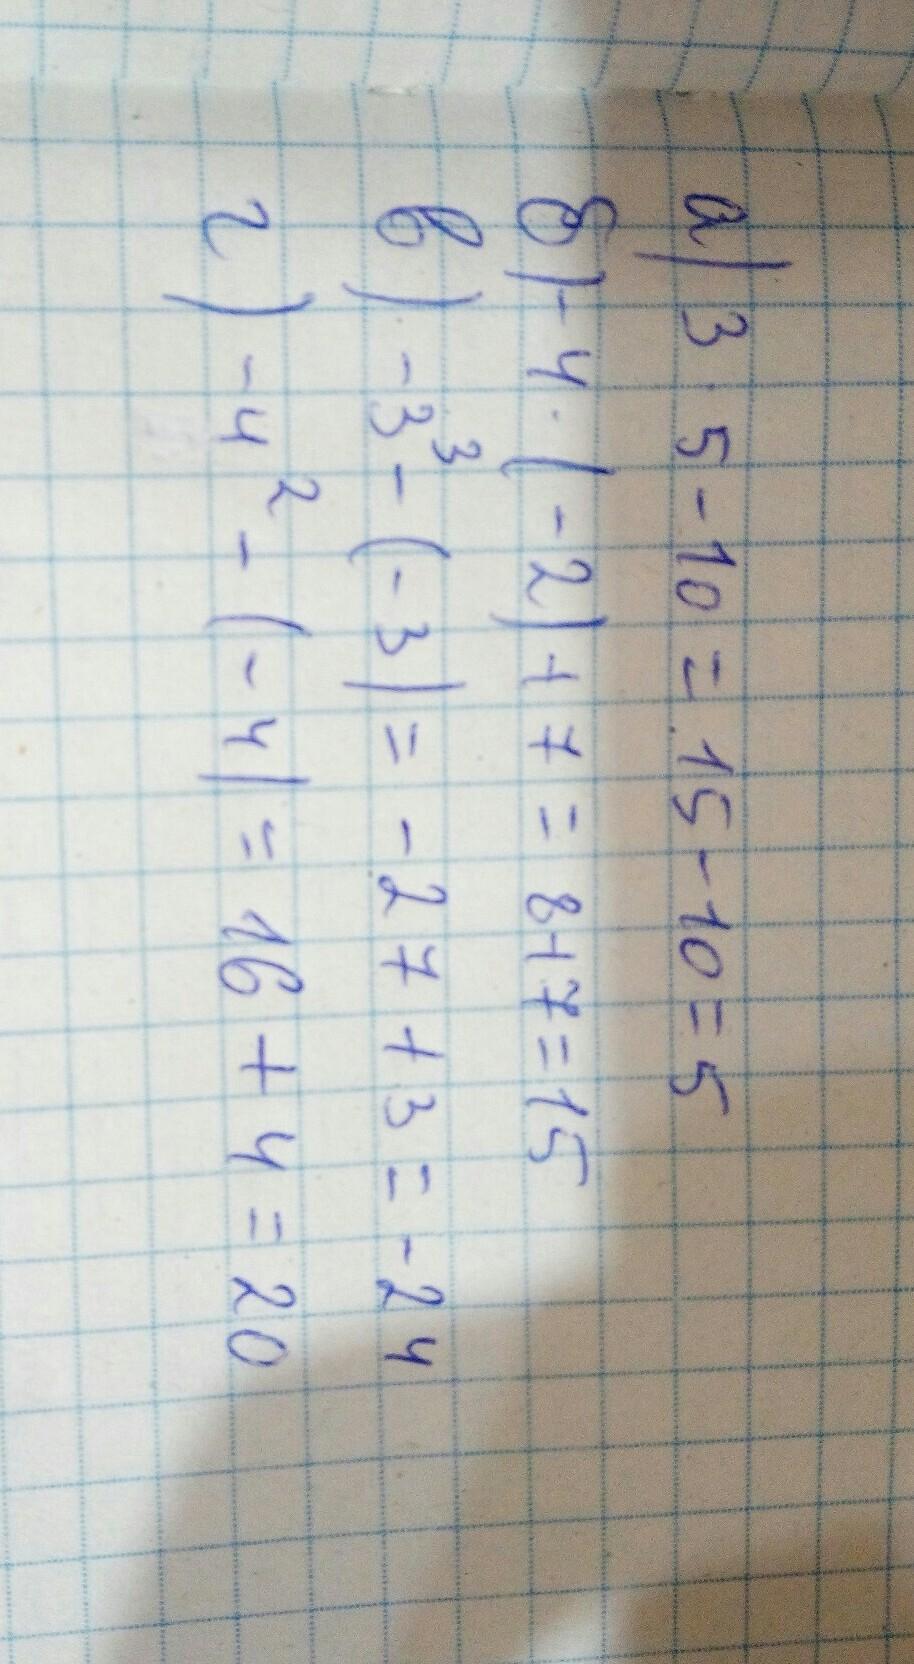 а) 3 · 5 - 10 = 15 - 10 = 5
б) -4 · (-2) + 7 = 8+7=15
в) -3³ - (-3) = -27+3 = -24
г) -4² - (-4) = 16 + 4 = 20